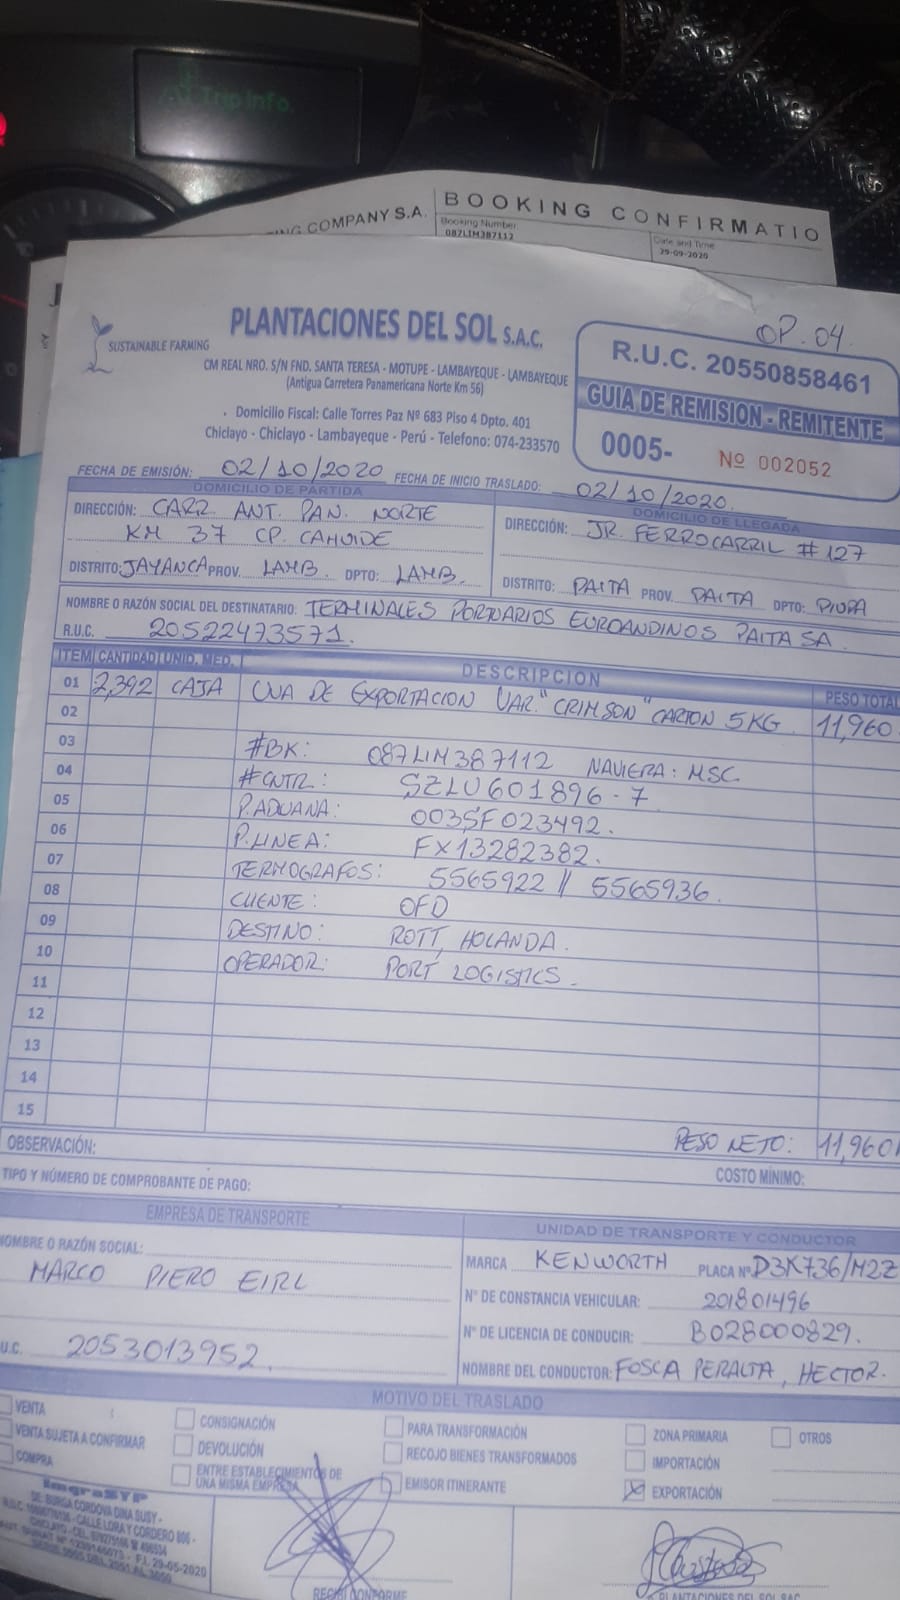 Trip Info.
ING COMPANY S.A.
BOOKING CONFIRMATIO
Booking Number:
087LIM387112
Date and Time
29-09-2020
OP. 04
SUSTAINABLE FARMING
PLANTACIONES DEL SOL S.A.C.
CM REAL NRO. S/N FND. SANTA TERESA - MOTUPE - LAMBAYEQUE - LAMBAYEQUE
(Antigua Carretera Panamericana Norte Km 56)
. Domicilio Fiscal: Calle Torres Paz Nº 683 Piso 4 Dpto. 401
Chiclayo - Chiclayo - Lambayeque - Perú - Telefono: 074-233570
R.U.C. 20550858461
GUIA DE REMISION - REMITENTE
0005- Nº 002052
FECHA DE EMISIÓN: 02/10/2020 FECHA DE INICIO TRASLADO: 02/10/2020.
DOMICILIO DE PARTIDA
DIRECCIÓN: CARR ANT. PAN. NORTE
KM 37 CP. CAHUIDE
DISTRITO: JAYANCA PROV. LAMB. DPTO: LAMB.
DOMICILIO DE LLEGADA
DIRECCIÓN: JR. FERROCARRIL #127
DISTRITO: PAITA PROV. PAITA DPTO: PIURA
NOMBRE O RAZÓN SOCIAL DEL DESTINATARIO: TERMINALES PORTUARIOS EUROANDINOS PAITA SA.
R.U.C. 20522473571.
ITEM CANTIDAD UNID. MED. DESCRIPCION PESO TOTAL
01 2,392 CAJA UVA DE EXPORTACION VAR. "CRIMSON" CARTON 5KG. 11,960
02
03 #BK: 087LIM387112 NAVIERA: MSC
04 #CNTR: SZLU601896-7
05 P.ADUANA: 003SF023492.
06 P.LINEA: FX13282382.
07 TERMOGRAFOS: 5565922 // 5565936.
08 CLIENTE: OFD
09 DESTINO: ROTT, HOLANDA.
10 OPERADOR: PORT LOGISTICS.
11
12
13
14
15
PESO NETO: 11,960
OBSERVACIÓN:
COSTO MÍNIMO:
TIPO Y NÚMERO DE COMPROBANTE DE PAGO:
EMPRESA DE TRANSPORTE
NOMBRE O RAZÓN SOCIAL:
MARCO PIERO EIRL
U.C. 2053013952.
UNIDAD DE TRANSPORTE Y CONDUCTOR
MARCA KENWORTH PLACA Nº D3K736/M2Z
Nº DE CONSTANCIA VEHICULAR: 201801496
Nº DE LICENCIA DE CONDUCIR: B028000829.
NOMBRE DEL CONDUCTOR: FOSCA PERALTA, HECTOR.
MOTIVO DEL TRASLADO
VENTA
VENTA SUJETA A CONFIRMAR
COMPRA
CONSIGNACIÓN
DEVOLUCIÓN
ENTRE ESTABLECIMIENTOS DE
UNA MISMA EMPRESA
PARA TRANSFORMACIÓN
RECOJO BIENES TRANSFORMADOS
EMISOR ITINERANTE
ZONA PRIMARIA
IMPORTACIÓN
X EXPORTACIÓN
OTROS
ImgraSYP
DE: BURGA CORDOVA DINA SUSY -
CALLE LORA Y CORDERO 806 -
F.I. 29-05-2020
CONFORME
PLANTACIONES DEL SOL SAC